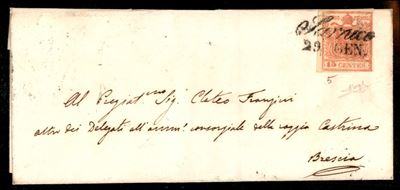 Sarnico
29 GEN.
15 CENTES.
5
Al Pregiat.mo Sig. Cleteo Franzini
altro dei Delegati all'amm.e consorziale della roggia Castrina
Brescia